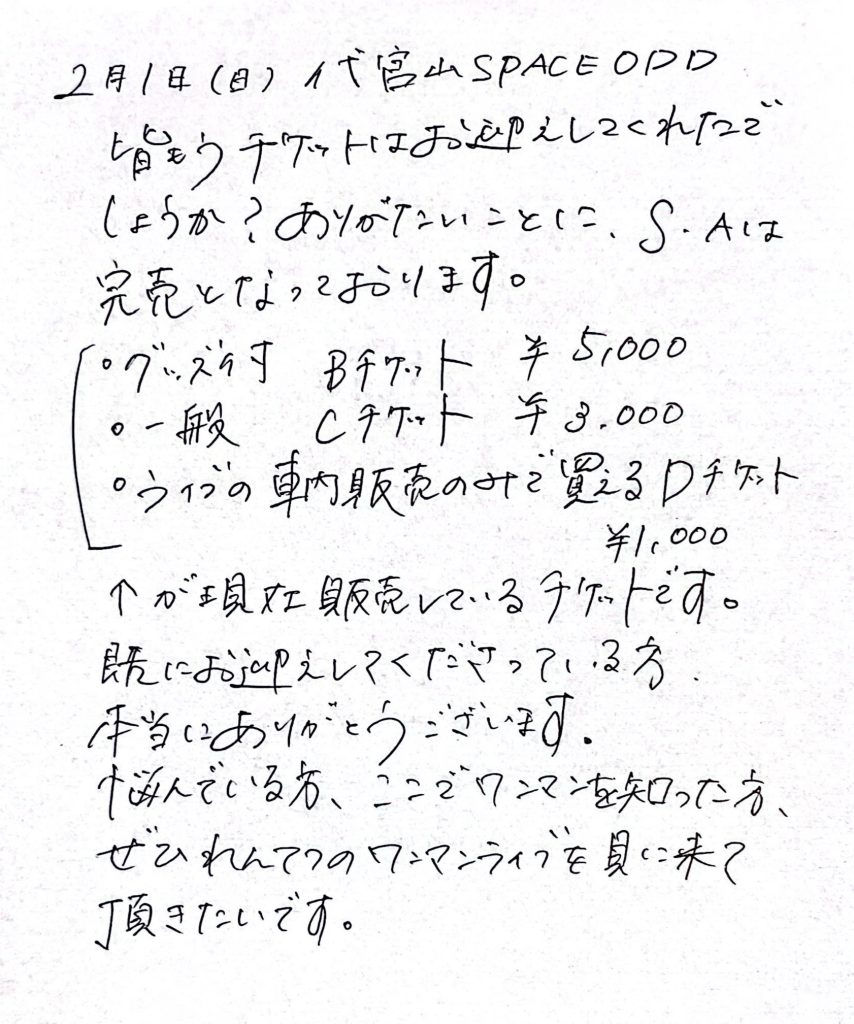 2月1日(日) 代官山SPACE ODD
皆もうチケットはお迎えしてくれたで
しょうか?ありがたいことに、S・Aは
完売となっております。
・グッズ付 Bチケット ¥5,000
・一般 Cチケット ¥3.000
・ライブの車内販売のみで買えるDチケット
¥1,000
↑が現在販売しているチケットです。
既にお迎えしてくださっている方、
本当にありがとうございます。
悩んでいる方、ここでワンマンを知った方、
ぜひれんてつのワンマンライブを見に来て
頂きたいです。